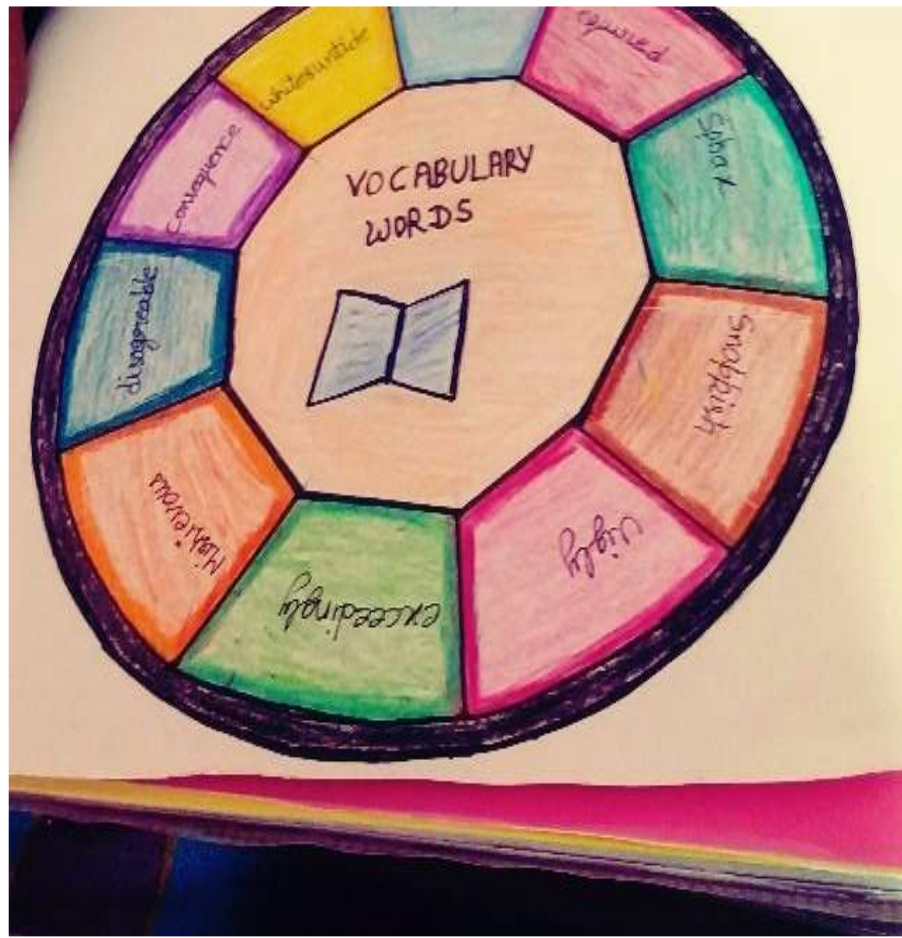 VOCABULARY
WORDS
Spoax
Snappish
Uigly
exceedingly
Mishievous
disagreeable
consequence
whitesuntide